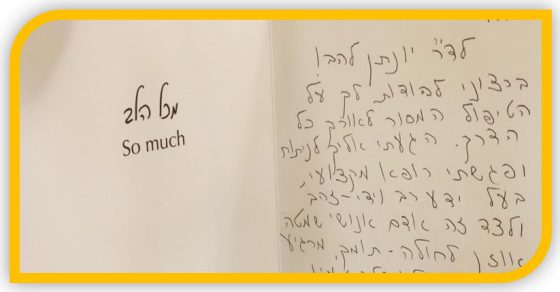 מכל הלב
So much
לד"ר יונתן להבו
ברצוני להודות לך על
הטיפול המסור לאורך כל
הדרך. הגעתי אליך לניתוח
ופגשתי רופא מקצועי,
בעל ידע רב וידי-זהב
ולצד זה אדם אנושי שמטה
אוזן לחולה - תומך, מרגיע